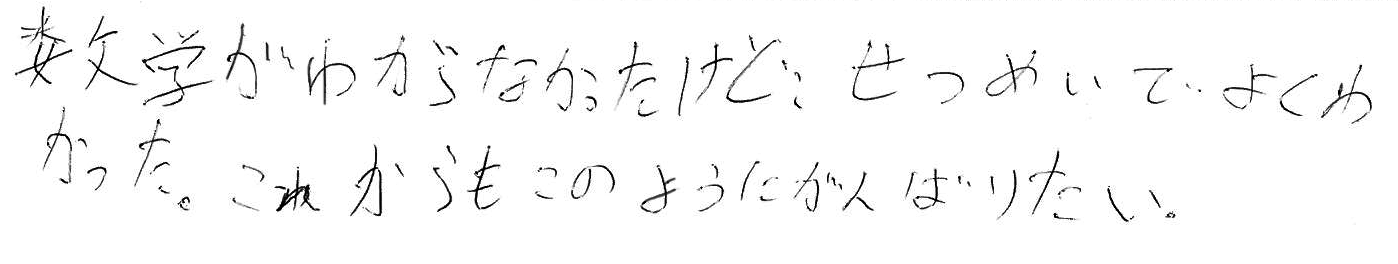 数学がわからなかったけど、せつめいでよくわ
かった。これからもこのようにがんばりたい。